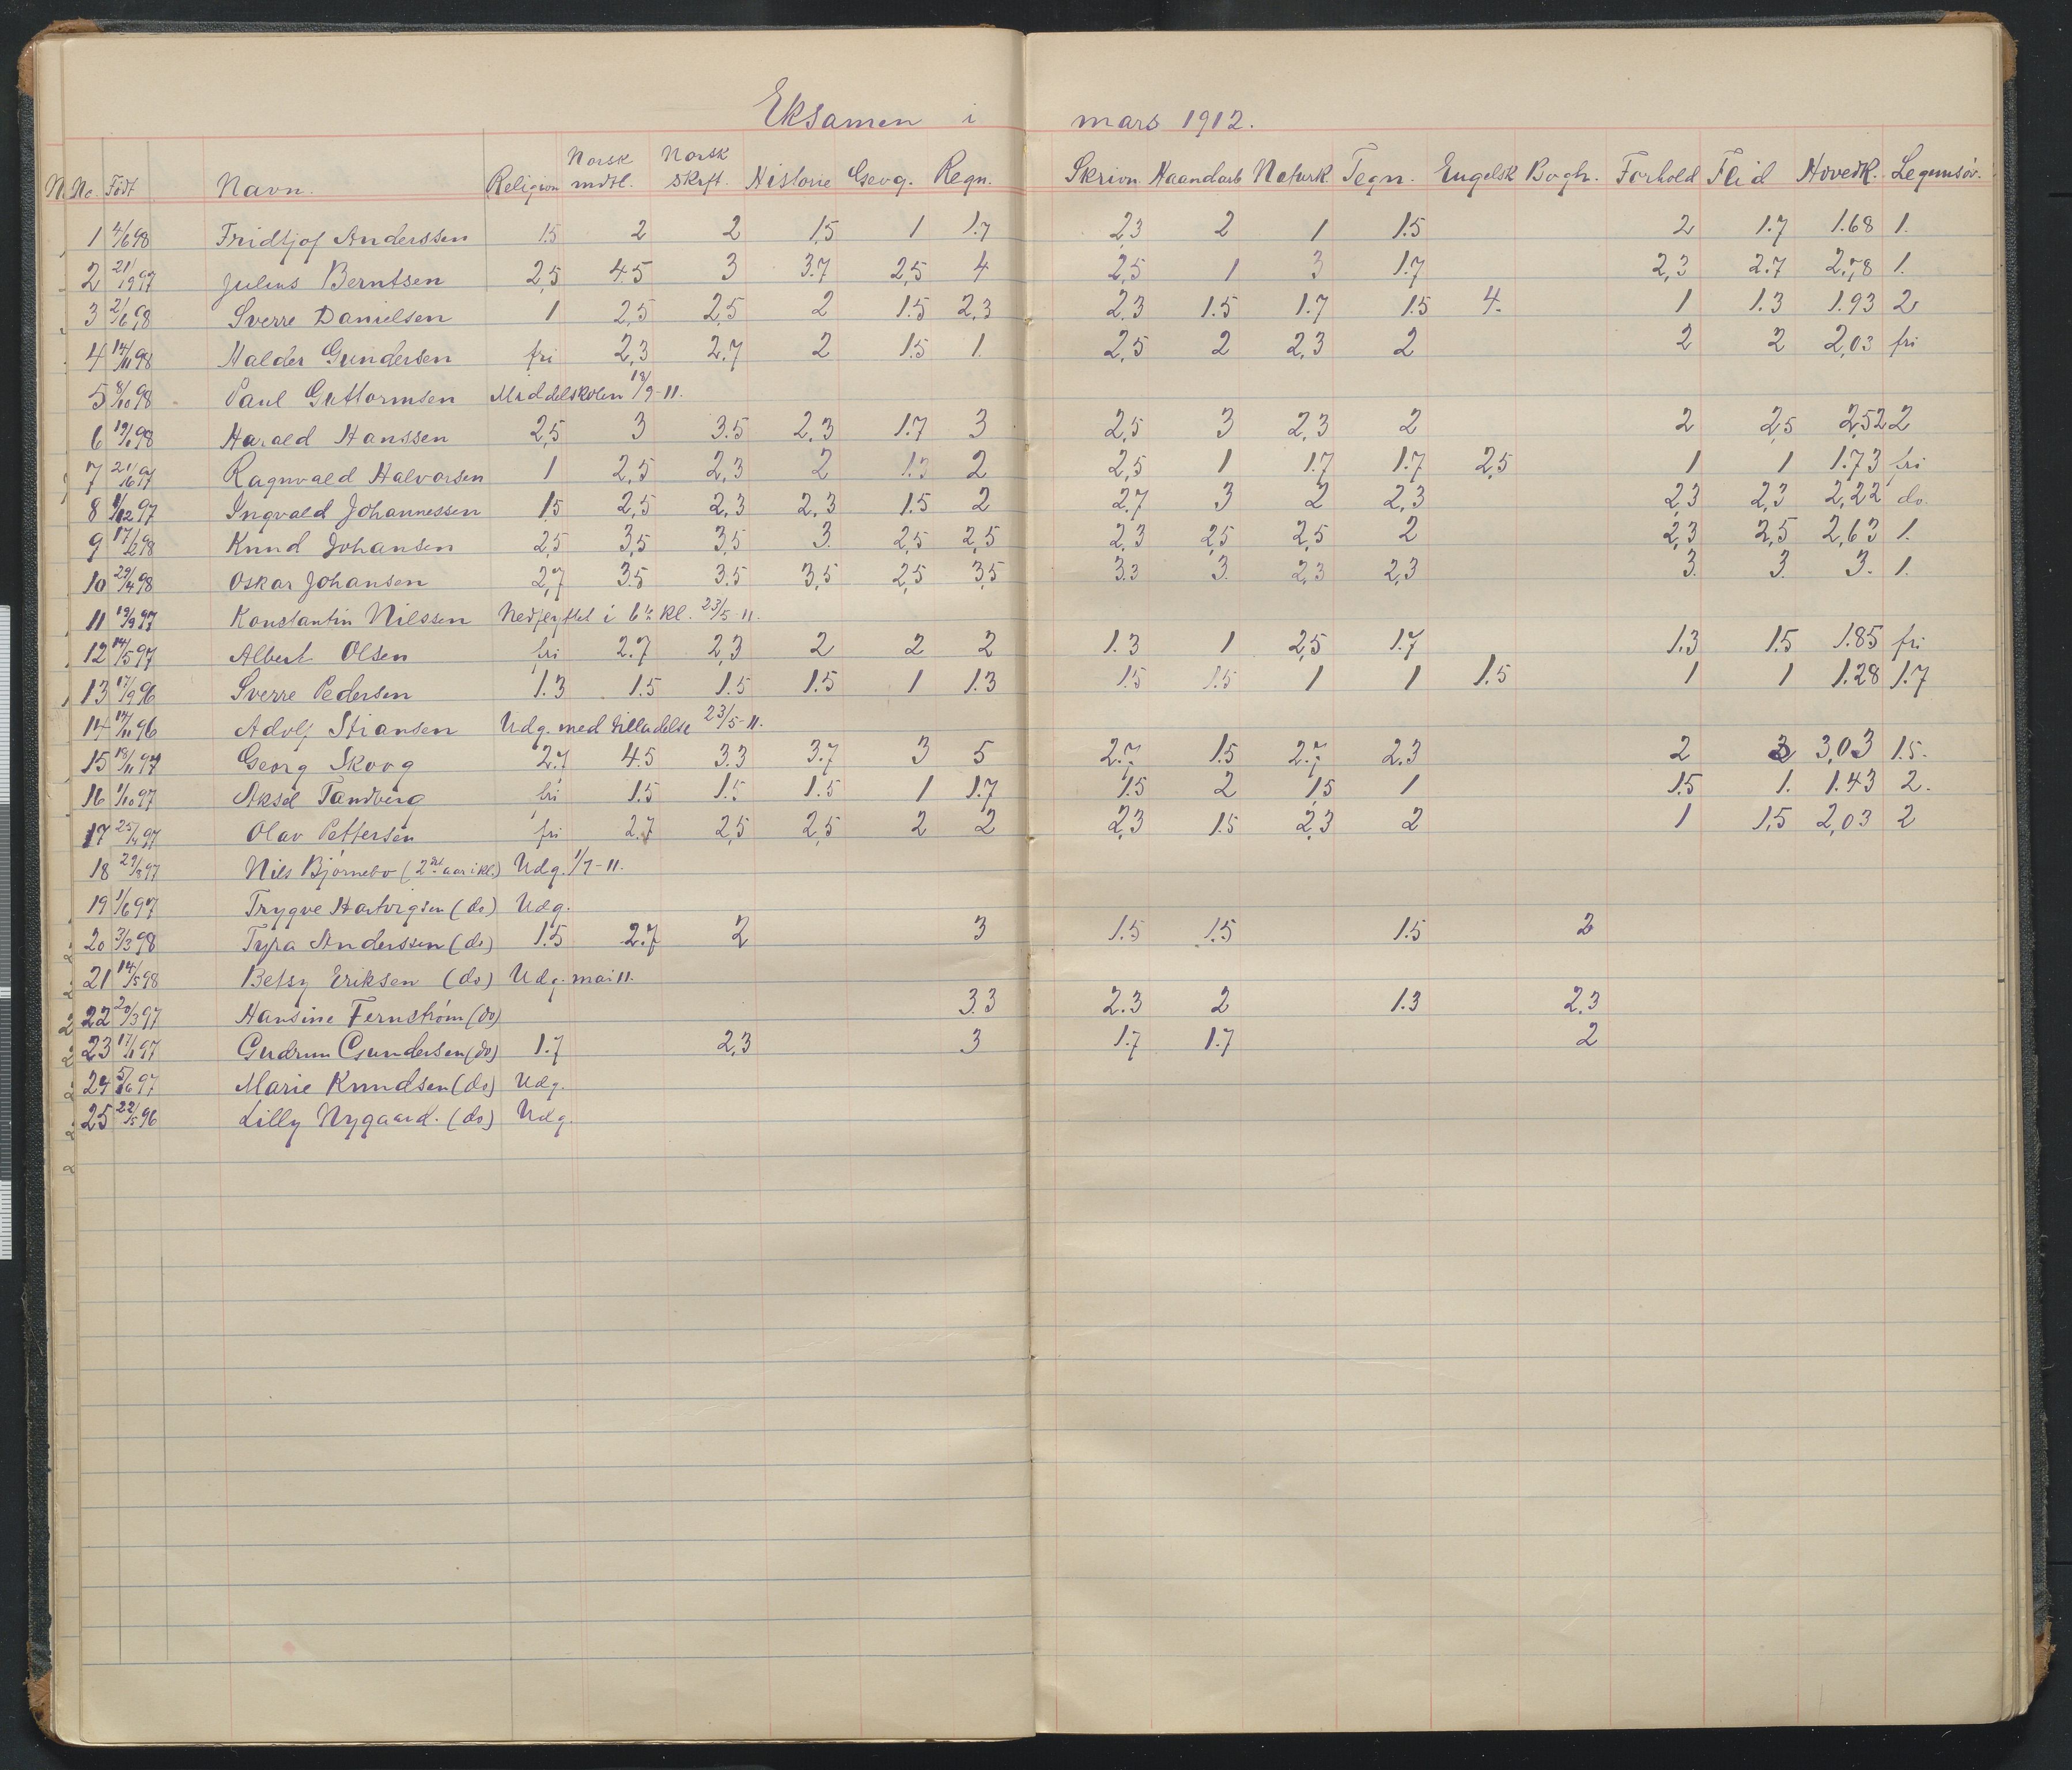 Eksamen i mars 1912.
No. Født Navn. Religion Norsk mdtl. Norsk skrft. Historie Geog. Regn. Skrivn. Haandarb Naturk. Tegn. Engelsk Bogh. Forhold Flid Hovedk. Legemsøv.
1 4/6 98 Fridtjof Anderssen 1.5 2 2 1.5 1 1.7 2,3 2 1 1.5 2 1.7 1.68 1.
2 21/1 97 Julius Berntsen 2,5 4.5 3 3.7 2,5 4 2,5 1 3 1.7 2,3 2.7 2,78 1.
3 2/6 98 Sverre Danielsen 1 2,5 2,5 2 1.5 2,3 2,3 1.5 1.7 1.5 4. 1 1.3 1.93 2
4 14/11 98 Halder Gundersen fri 2,3 2.7 2 1.5 1. 2,5 2 2,3 2 2 2 2,03 fri
5 8/10 98 Paul Guttormsen Middelskolen 18/9-11.
6 98 Harald Hanssen 2,5 3 3.5 2,3 1.7 3 2,5 3 2,3 2 2 2,5 2,52 2
7 21/ 97 Ragnvald Halvorsen 1 2,5 2,3 2 1.3 2 2,5 1 1.7 1.7 2,5 1 1 1.73 fri
8 1/12 97 Ingvald Johannessen 1.5 2,5 2,3 2,3 1.5 2 2.7 3 2 2,3 2,3 2,3 2,22 do.
9 17/2 98 Knud Johansen 2,5 3,5 3,5 3. 2,5 2,5 2,3 2,5 2,5 2 2,3 2,5 2,63 1.
10 29/4 98 Oskar Johansen 2,7 3.5 3.5 3,5 2,5 3,5 3.3 3. 2,3 2,3 3. 3. 3. 1.
11 19/9 97 Konstantin Nilssen Nedflyttet i 6te kl. 23/5-11.
12 14/5 97 Albert Olsen fri 2.7 2,3 2 2 2 1.3 1 2,5 1.7 1,3 1.5 1.85 fri
13 17/9 96 Sverre Pedersen 1.3 1.5 1.5 1.5 1 1.3 1.5 1.5 1 1 1.5 1 1 1.28 1.7
14 14/11 96 Adolf Stiansen Udg. med tilladelse 23/5-11.
15 18/11 97 Georg Skovg 2.7 4.5 3.3 3.7 3 5 2.7 1.5 2.7 2.3 2 3 3,03 1.5.
16 1/10 97 Aksel Tandberg fri 1.5 1.5 1.5 1 1.7 1.5 2 1.5 1 1.5 1. 1.43 2.
17 25/ 97 Olav Pettersen fri 2.7 2,5 2,5 2 2 2,3 1.5 2,3 2 1 1,5 2,03 2
18 29/8 97 Nils Bjørnebo (2det aar i kl.) Udg. 1/7-11.
19 1/6 97 Trygve Hartvigsen (do) Udg.
20 3/3 98 Tyra Anderssen (do) 1.5 2.7 2 3 1.5 1.5 1.5 2
21 14/5 98 Betsy Eriksen (do) Udg. mai 11.
22 20/3 97 Hansine Fernstrøm (do) 3.3 2.3 2 1.3 2,3
23 17/ 97 Gudrun Gundersen (do) 1.7 2,3 3 1.7 1.7 2
24 97 Marie Knudsen (do) Udg.
25 22/5 96 Lilly Nygaard. (do) Udg.